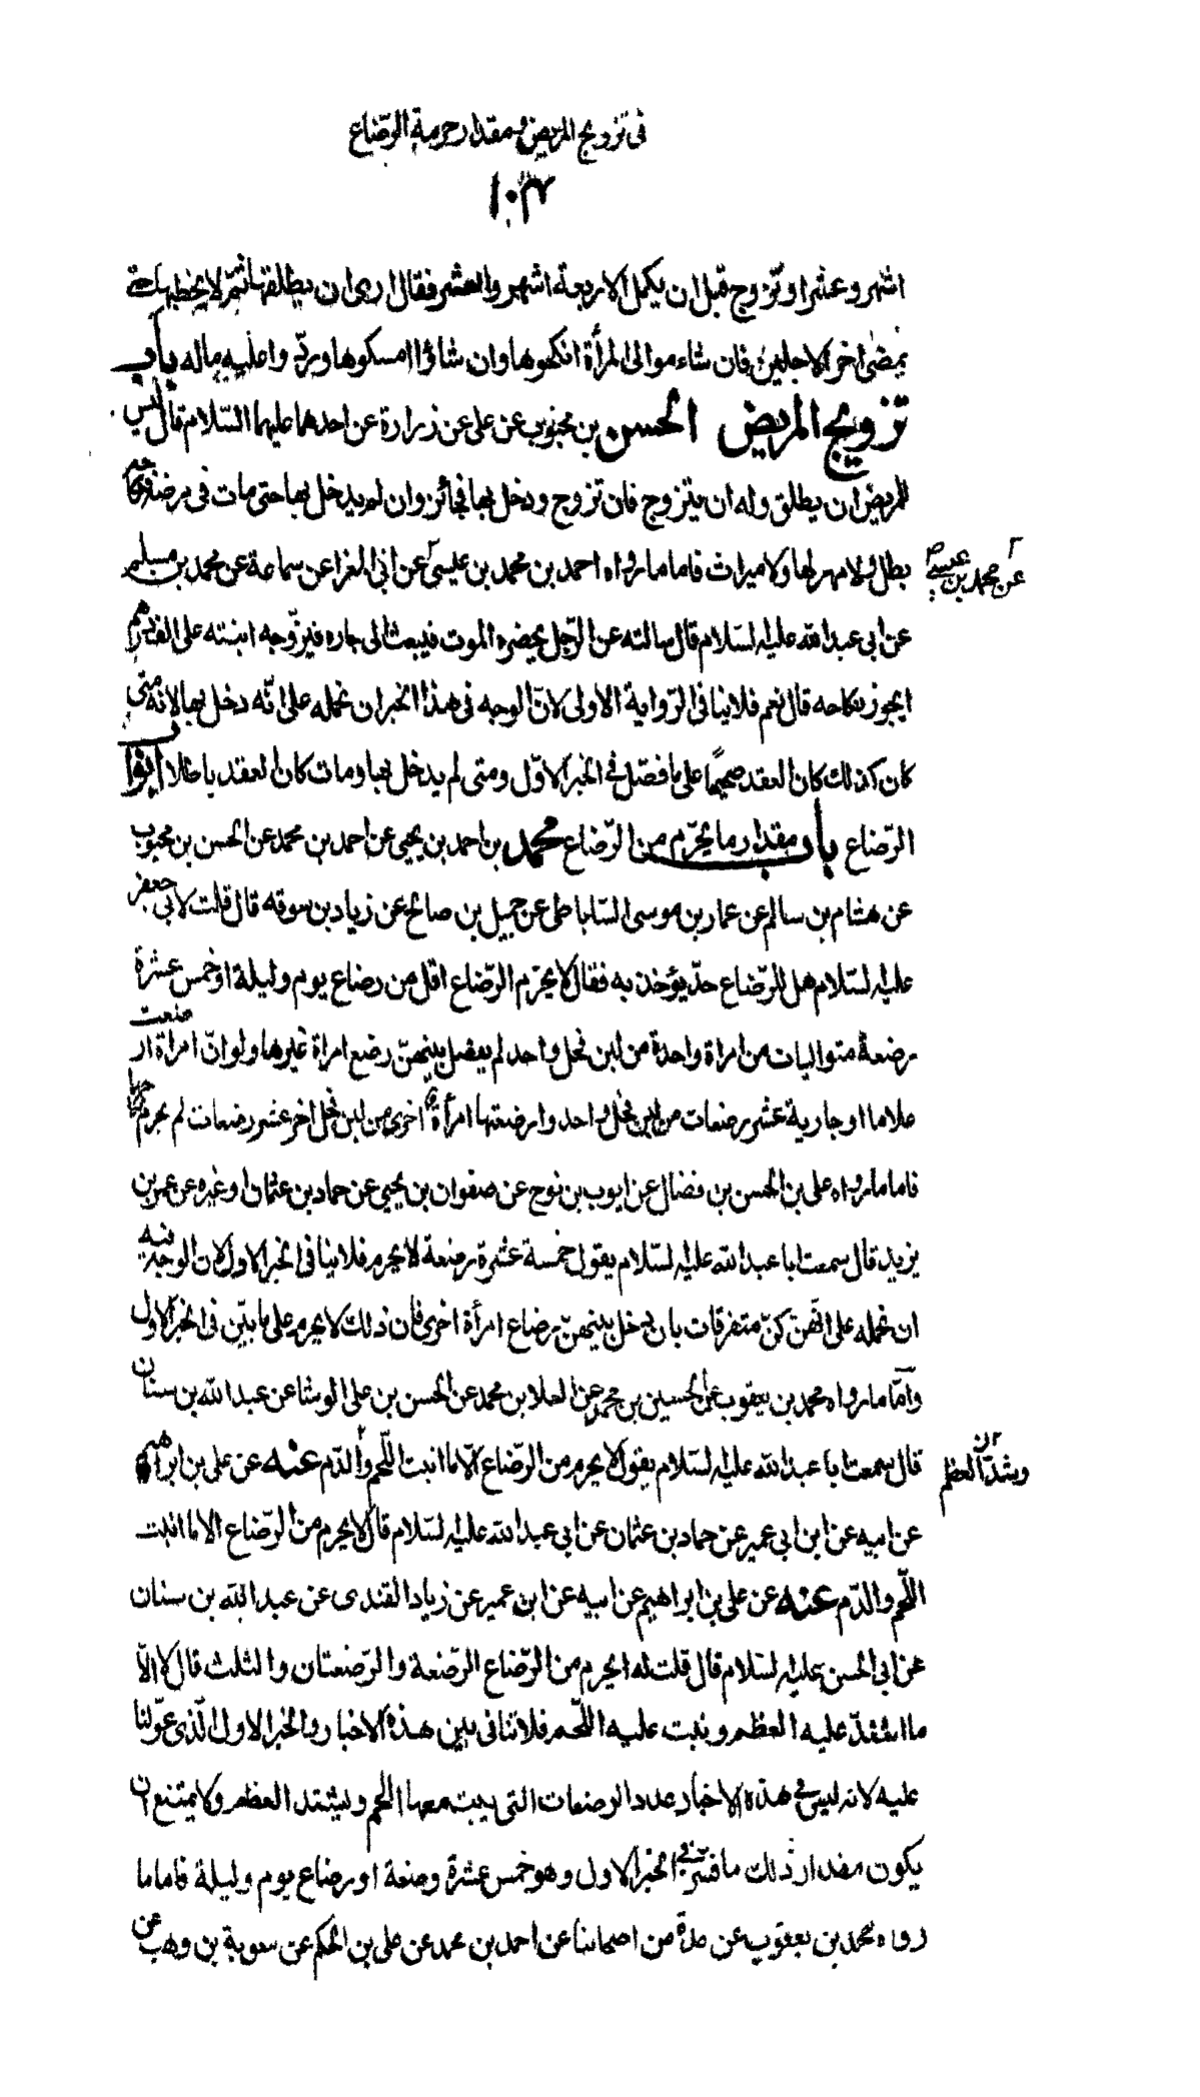 فى تزويج المريض ومقدار حرمة الرّضاع
١٠٣
اشهر وعشرا وتزوج قبل ان يكمل الاربعة اشهر والعشر فقال ارى ان يطلقها ثمّ لا يخطبها حتى
يمضى اخر الاجلين فان شاء موالى المرأة انكحوها وان شاؤا امسكوها وردّوا عليه ماله باب
تزويج المريض الحسن بن محبوب عن على عن زرارة عن احدهما عليهما السّلام قال ليس
للمريض ان يطلق وله ان يتزوج فان تزوج ودخل بها فجائز وان لم يدخل بها حتى مات فى مرضه فنكاحه
بطل ولا مهر لها ولا ميراث فاما ما رواه احمد بن محمد بن عيسى عن ابى المغرا عن سماعة عن محمد بن مسلم
عن محمد بن عيسى
عن ابى عبد الله عليه السّلام قال سالته عن الرّجل يحضره الموت فيبعث الى جاره فيزوّجه ابنته على الف درهم
ايجوز نكاحه قال نعم فلا ينافى الرّواية الاولى لانّ الوجه فى هذا الخبر ان نحمله على انّه دخل بها لانه متى
كان كذلك كان العقد صحيحًا على ما فصّل فى الخبر الاوّل ومتى لم يدخل بها ومات كان العقد باطلا ابواب
الرّضاع باب مقدار ما يحرّم من الرّضاع محمد بن احمد بن يحيى عن احمد بن محمد عن الحسن بن محبوب
عن هشام بن سالم عن عمار بن موسى السّاباطى عن جميل بن صالح عن زياد بن سوقه قال قلت لابى جعفر
عليه السّلام هل للرّضاع حدّ يؤخذ به فقال لا يحرّم الرّضاع اقل من رضاع يوم وليلة او خمس عشرة
رضعة متواليات من امراة واحدة من لبن فحل واحد لم يفصل بينهنّ رضع امراة غيرها ولو انّ امراة ارضعت
غلاما او جارية عشر رضعات من لبن فحل واحد وارضعتها امرأة اخرى من لبن فحل اخر عشر رضعات لم يحرم نكاحهما
فاما ما رواه على بن الحسن بن فضال عن ايوب بن نوح عن صفوان بن يحيى عن حماد بن عثمان او غيره عن عمر بن
يزيد قال سمعت ابا عبد الله عليه السّلام يقول خمسة عشرة رضعة لا يحرم فلا ينافى الخبر الاول لان الوجه فيه
ان نحمله على انّهنّ كنّ متفرقات بان يدخل بينهنّ رضاع امرأة اخرى فان ذلك لا يحرم على ما بيّن فى الخبر الاول
وامّا ما رواه محمد بن يعقوب عن الحسين بن محمد عن العلا بن محمد عن الحسن بن على الوشا عن عبد الله بن سنان
قال سمعت ابا عبد الله عليه السّلام يقول لا يحرم من الرّضاع الّا ما انبت اللّحم والدّم عنه عن على بن ابراهيم
وشدّ العظم
عن ابيه عن ابن ابى عمير عن حماد بن عثمان عن ابى عبد الله عليه السّلام قال لا يحرم من الرّضاع الا ما انبت
اللّحم والدّم عنه عن على بن ابراهيم عن ابيه عن ابن عمير عن زياد القندى عن عبد الله بن سنان
عن ابى الحسن عليه السّلام قال قلت له ايحرم من الرّضاع الرّضعة والرّضعتان والثلث قال لا الّا
ما اشتدّ عليه العظم ونبت عليه اللّحم فلا تنافى بين هذه الاخبار والخبر الاول الّذى عوّلنا
عليه لانه ليس فى هذه الاخبار عدد الرضعات التى ينبت معها اللحم ويشتد العظم ولا يمتنع ان
يكون مقدار ذلك ما فسّر فى الخبر الاول وهو خمس عشرة رضعة او رضاع يوم وليلة فاما ما
رواه محمد بن يعقوب عن عدة من اصحابنا عن احمد بن محمد عن على بن الحكم عن معوية بن وهب عن